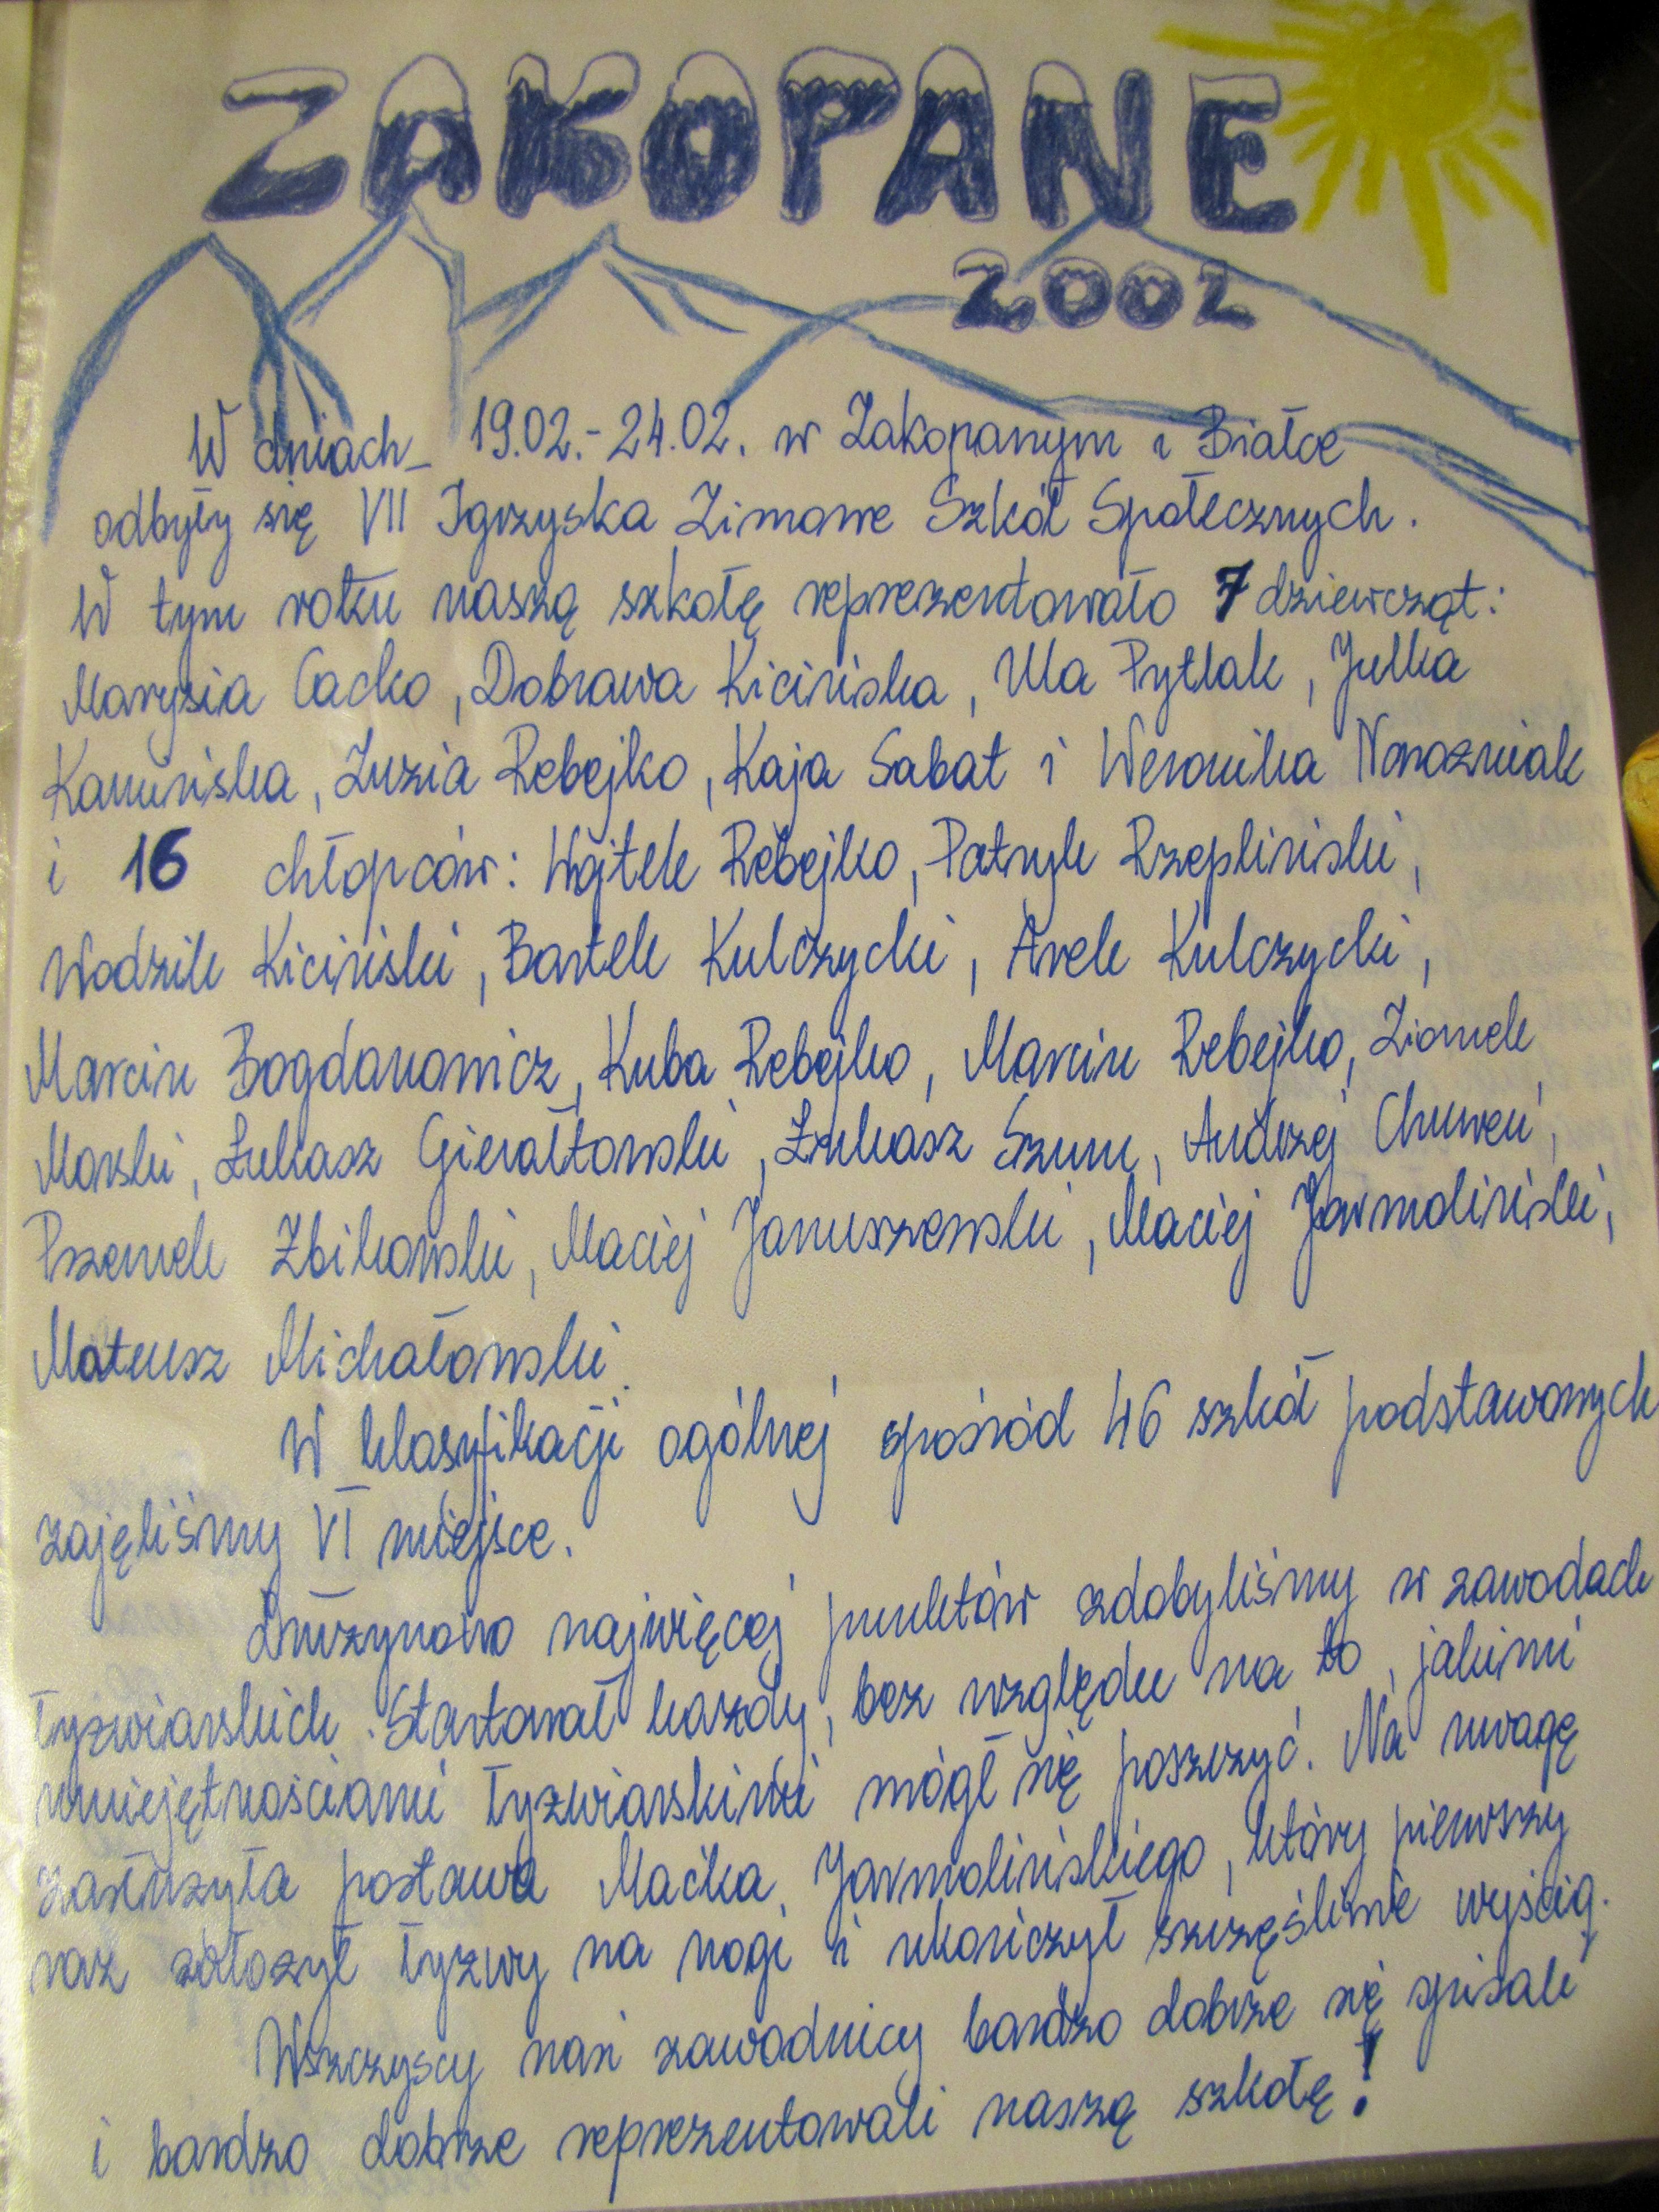 ZAKOPANE
2002
W dniach 19.02.-24.02. w Zakopanym i Białce
odbyły się VII Igrzyska Zimowe Szkół Społecznych.
W tym roku naszą szkołę reprezentowało 7 dziewcząt:
Marysia Cacko, Dobrawa Kicińska, Ula Pytlak, Julka
Kamińska, Zuzia Rebejko, Kaja Sabat i Weronika Nowozniak
i 16 chłopców: Wojtek Rebejko, Patryk Rzepliński,
Wodzik Kiciński, Bartek Kulczycki, Arek Kulczycki,
Marcin Bogdanowicz, Kuba Rebejko, Marcin Rebejko, Ziomek
Morski, Łukasz Gierałtowski, Łukasz Szum, Andrzej
Przemek Zbikowski, Maciej Januszewski, Maciej Jarmoliński,
Mateusz Michałowski.
W klasyfikacji ogólnej spośród 46 szkół podstawowych
zajęliśmy VI miejsce.
Drużynowo najwięcej punktów zdobyliśmy w zawodach
łyżwiarskich. Startował każdy, bez względu na to, jakimi
umiejętnościami łyżwiarskimi mógł się poszczyć. Na uwagę
zasłużyła postawa Maćka Jarmolińskiego, który pierwszy
raz założył łyżwy na nogi i ukończył szczęśliwie wyścig.
Wszczyscy nasi zawodnicy bardzo dobrze się spisali
i bardzo dobrze reprezentowali naszą szkołę!